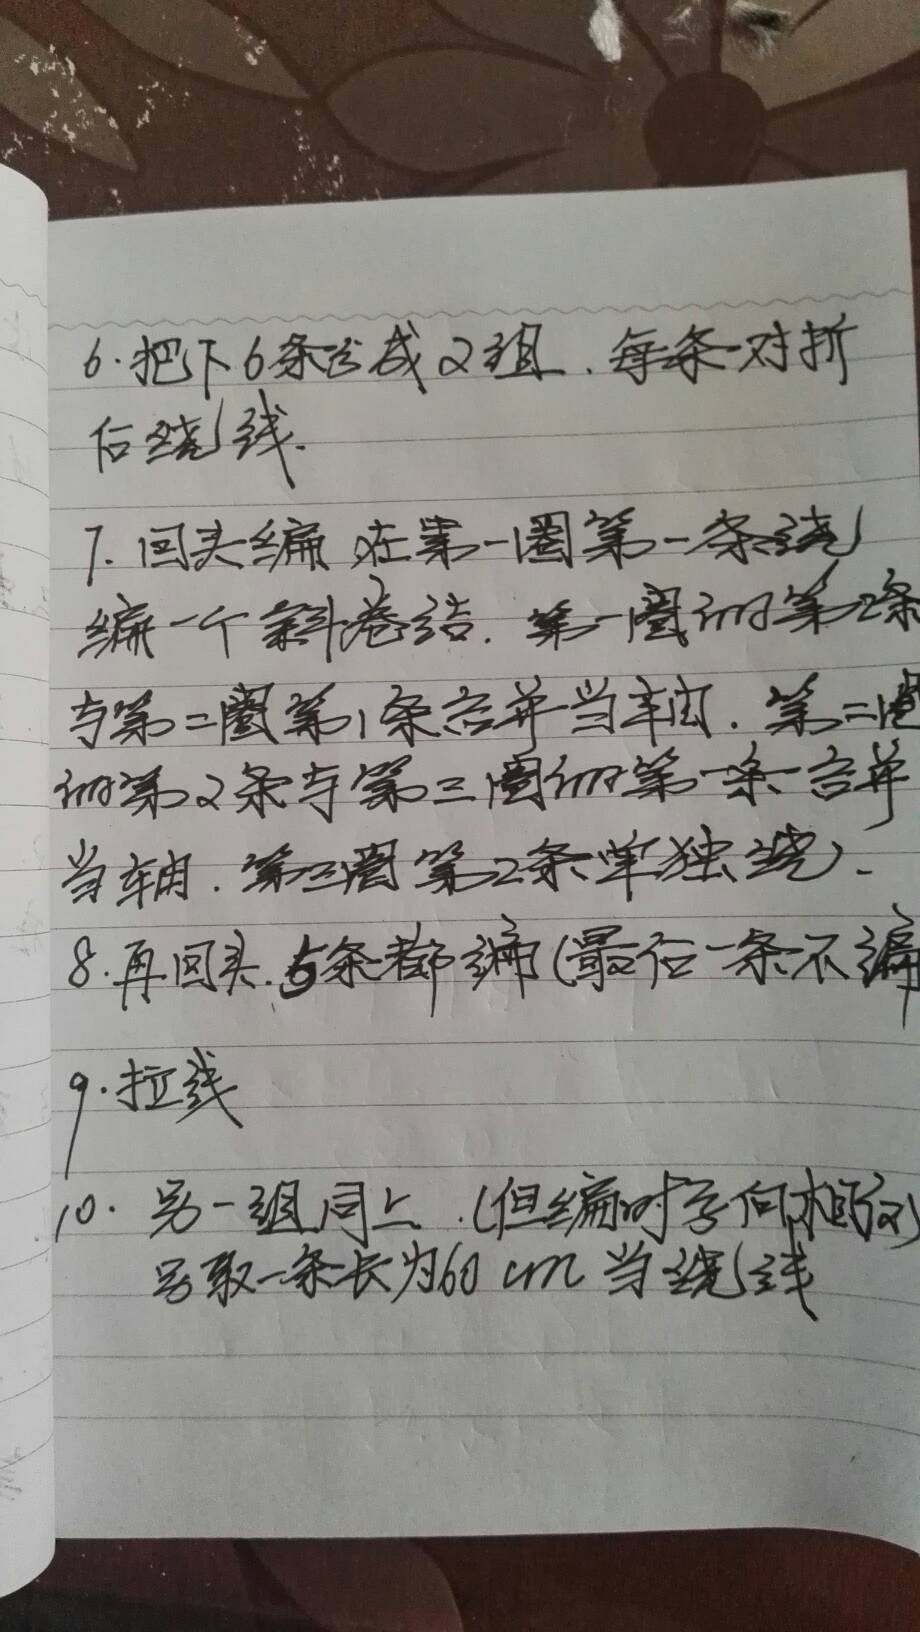 6.把下6条分成2组.每条对折
后绕线.
7.回头编 在第一圈第一条绕
编一个斜卷结.第一圈的第2条
与第二圈第1条合并当轴.第二圈
的第2条与第三圈的第一条合并
当轴.第三圈第2条单独绕.
8.再回头.5条都编(最后一条不编
9.拉线
10. 另一组同上.(但编时方向相反)
另取一条长为60cm当绕线